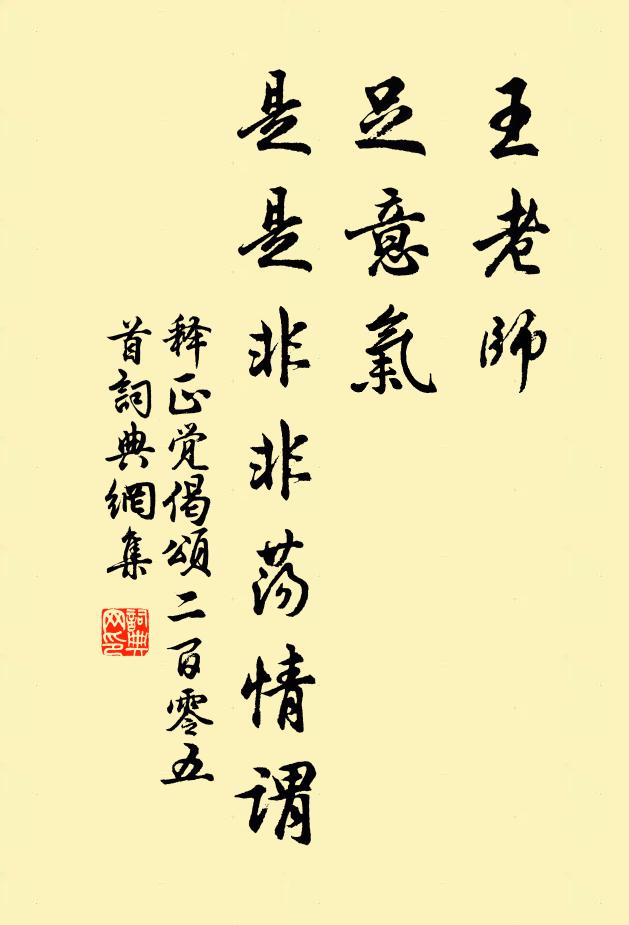 王老師
足意氣
是是非非蕩情謂
释正觉偈頌二百零五
首詞典網集
詞典網印